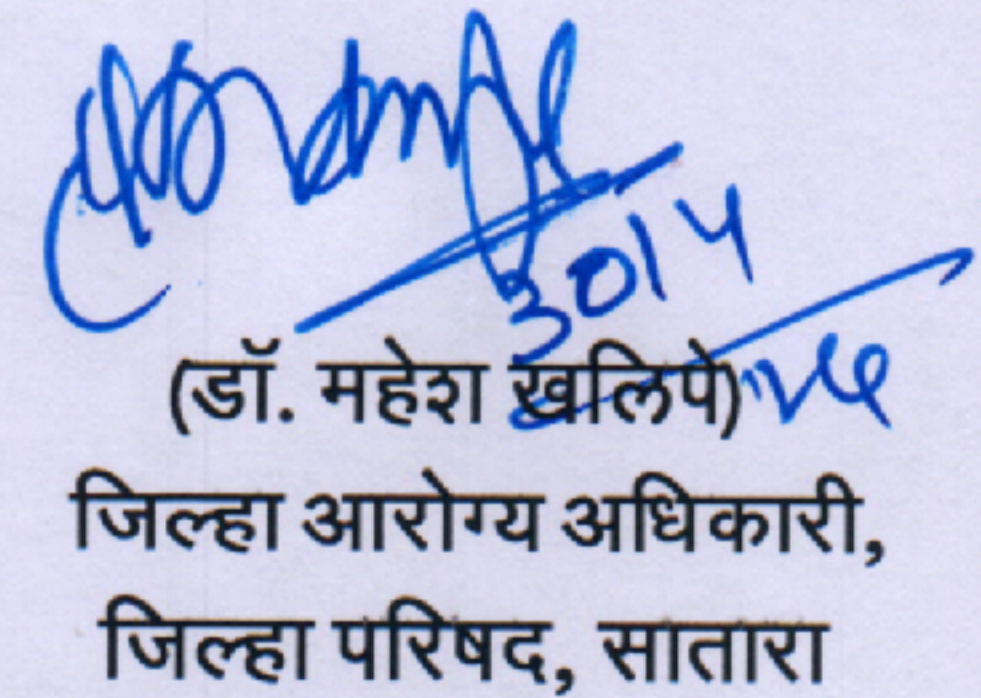 ३०/५
(डॉ. महेश खलिपे)
जिल्हा आरोग्य अधिकारी,
जिल्हा परिषद, सातारा